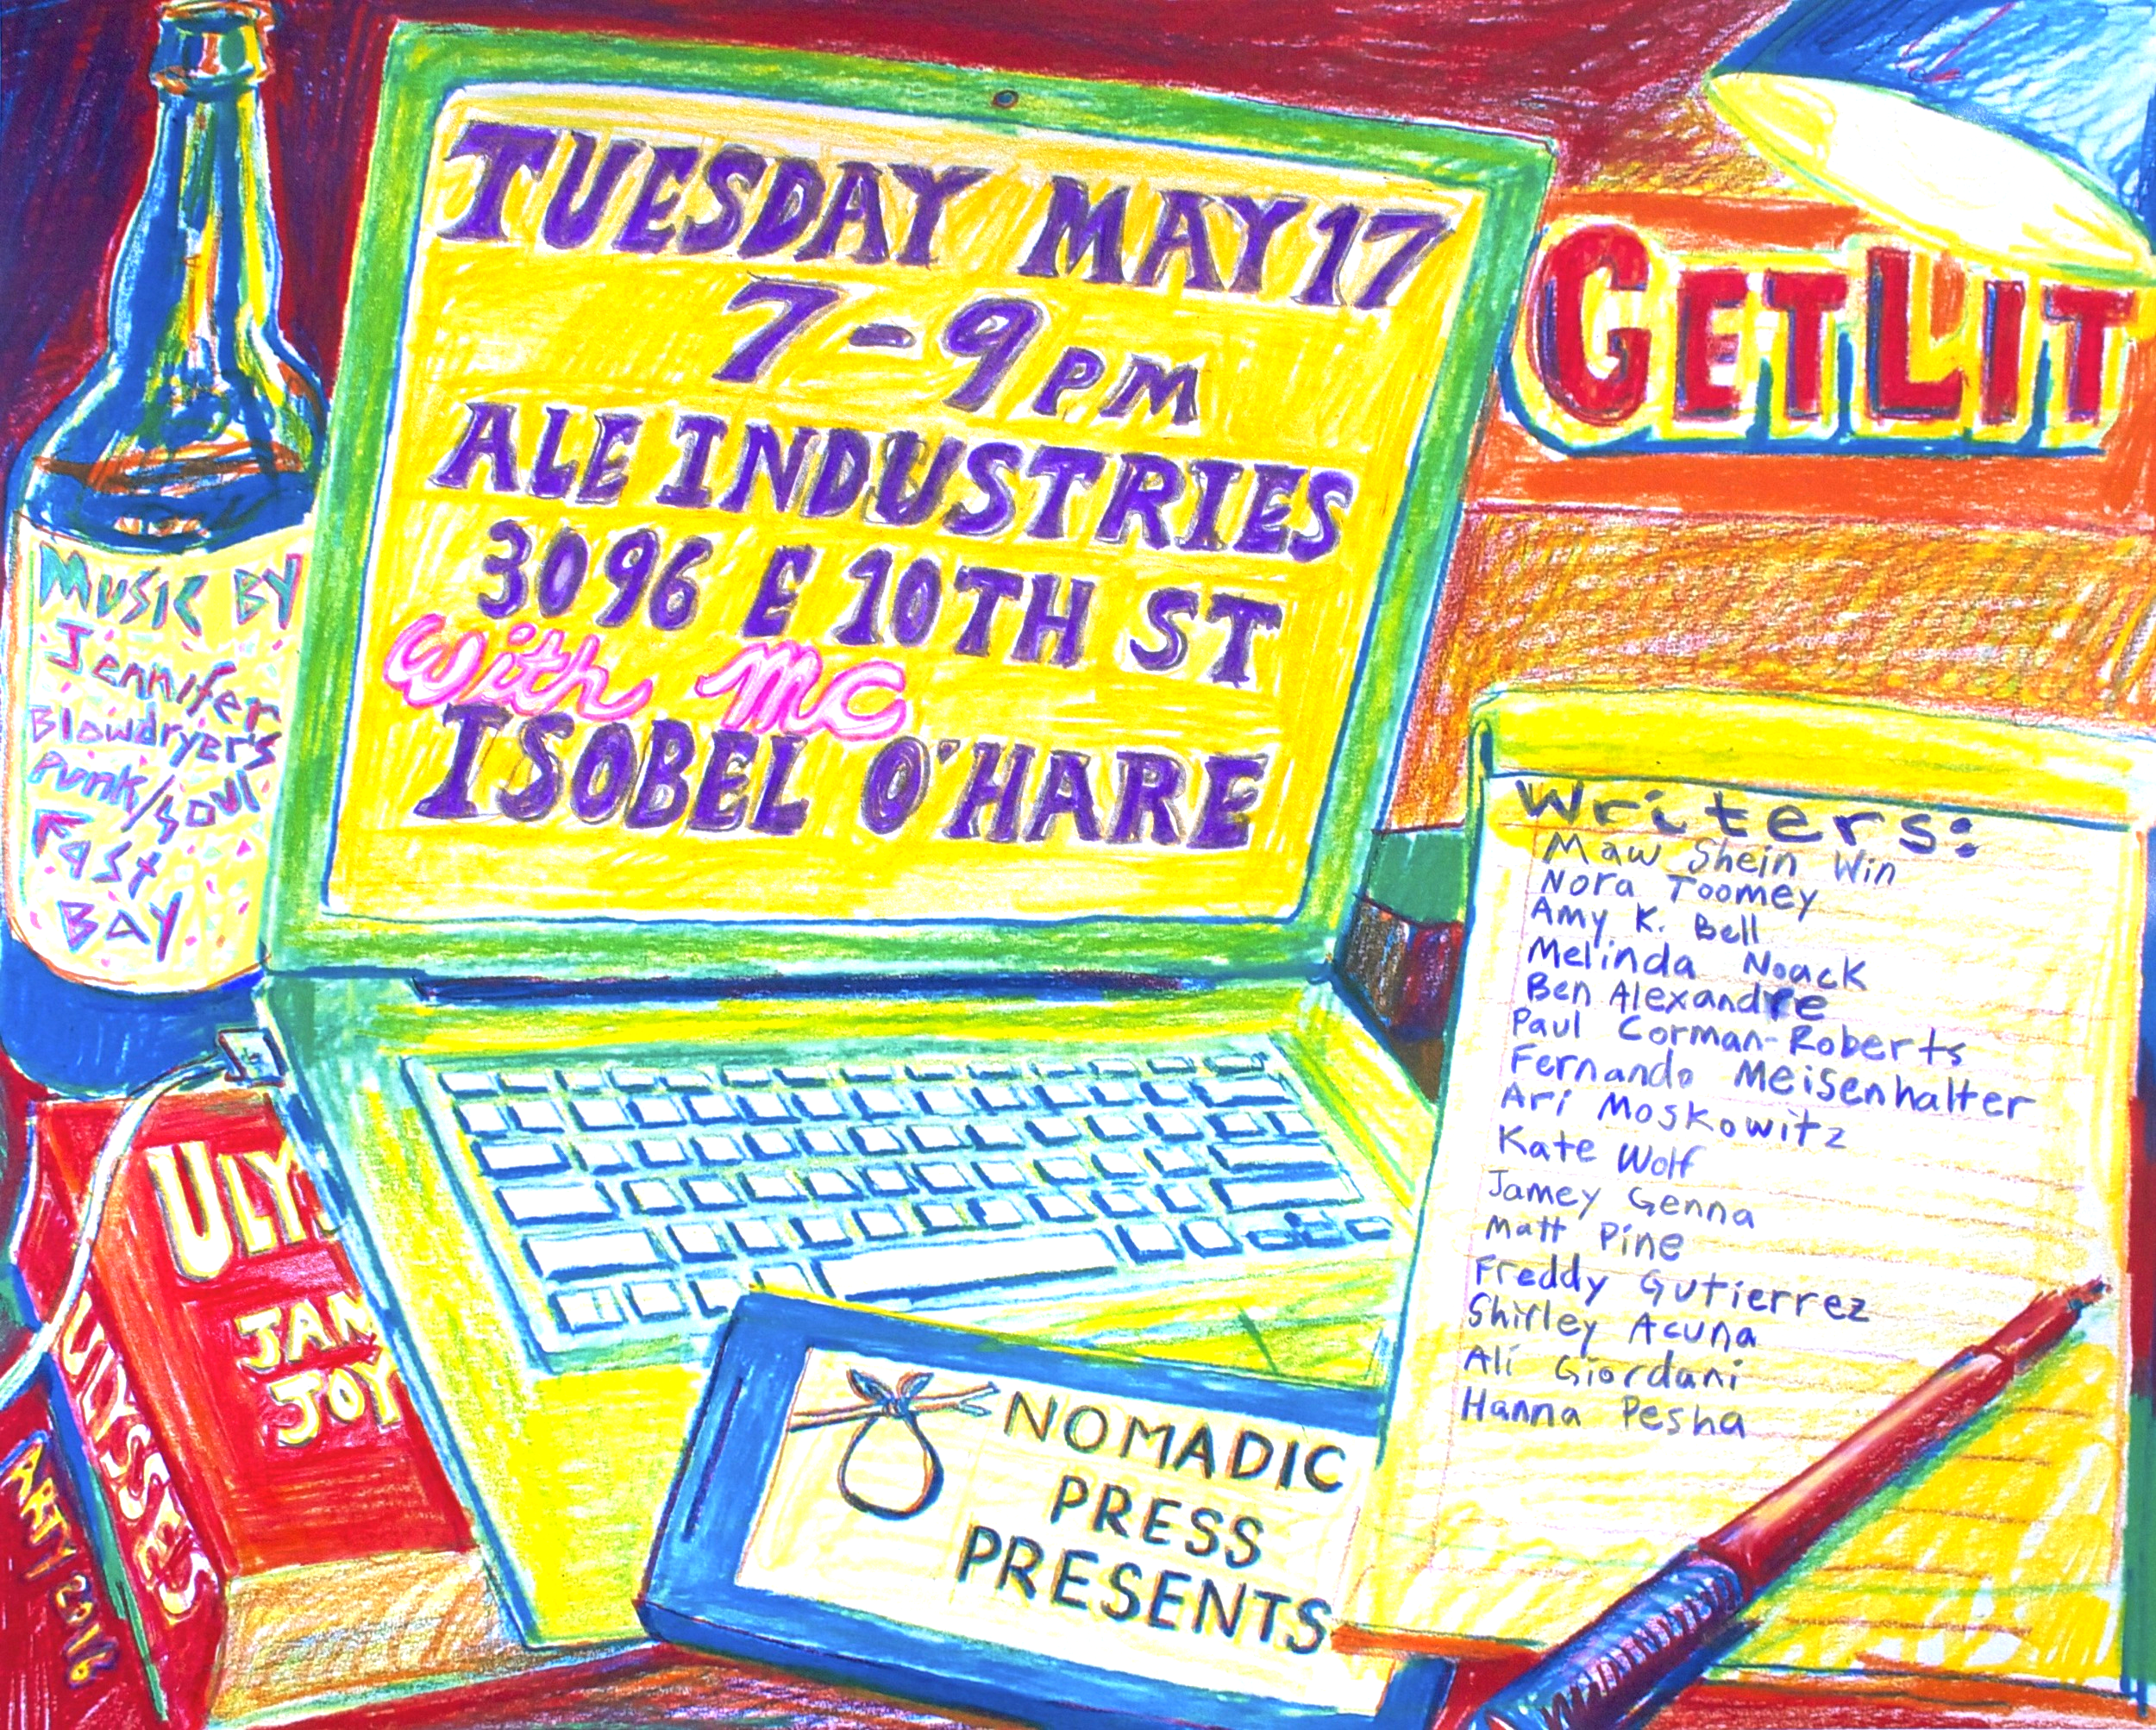 TUESDAY MAY 17
7-9 PM
ALE INDUSTRIES
3096 E 10TH ST
With MC
ISOBEL O'HARE
GETLIT
MUSIC BY
Jennifer
Blowdryer's
Punk/soul
East
BAY
Writers:
Maw Shein Win
Nora Toomey
Amy K. Bell
Melinda Noack
Ben Alexandre
Paul Corman-Roberts
Fernando Meisenhalter
Ari Moskowitz
Kate Wolf
Jamey Genna
Matt Pine
Freddy Gutierrez
Shirley Acuna
Ali Giordani
Hanna Pesha
ULY
JAM
JOY
ULYSSES
ARTY 2016
NOMADIC
PRESS
PRESENTS